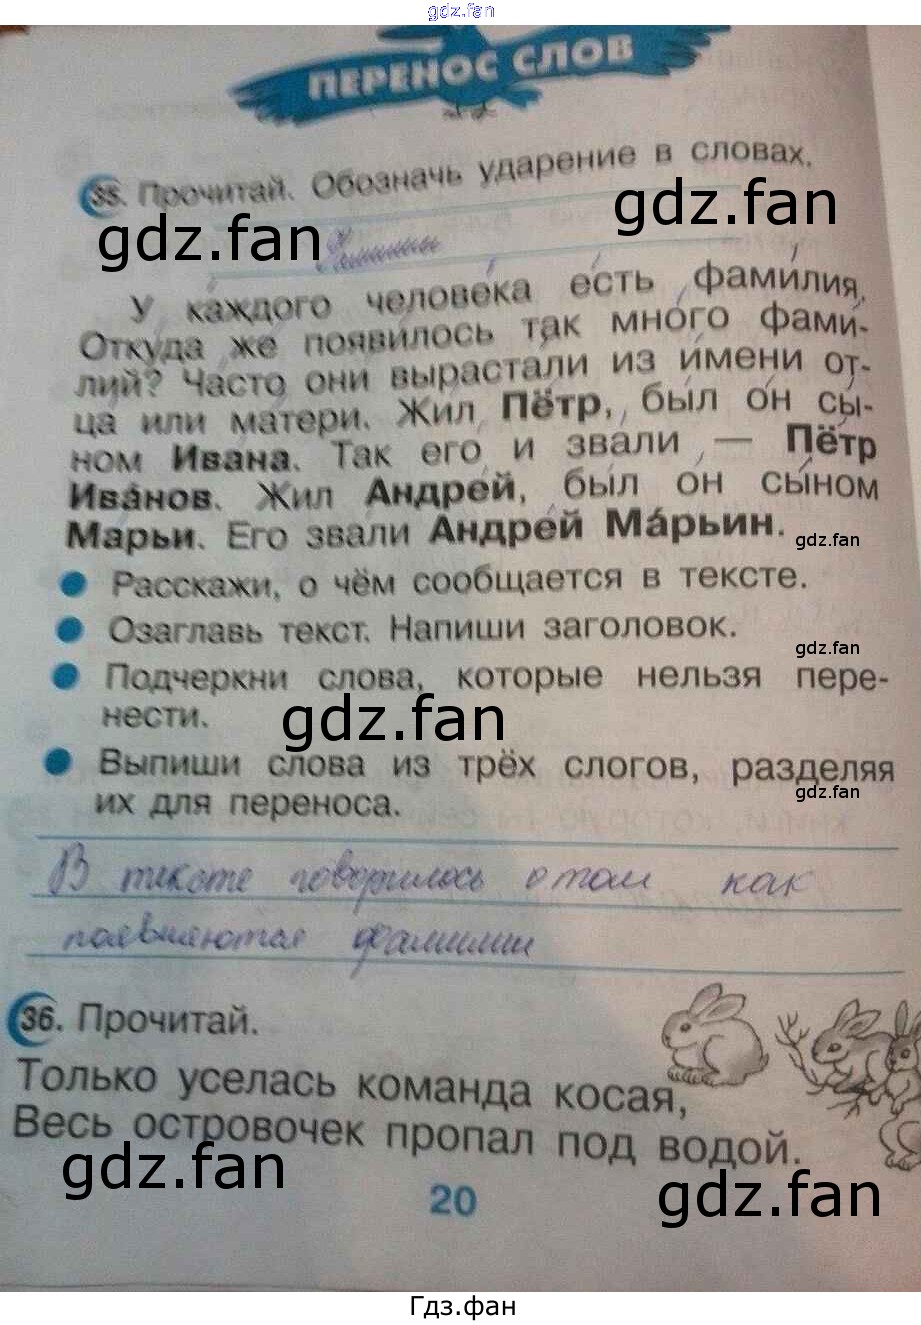 gdz.fan
ПЕРЕНОС СЛОВ
35. Прочитай. Обозначь ударение в словах.
gdz.fan
gdz.fan
Фамилии
У каждого человека есть фами́лия.
Откуда же появилось так много фами-
лий? Часто они вырастали из имени от-
ца или матери. Жил Пётр, был он сы-
ном Ивана. Так его и звали — Пётр
Ива́нов. Жил Андрей, был он сыном
Марьи. Его звали Андрей Ма́рьин.
gdz.fan
Расскажи, о чём сообщается в тексте.
Озаглавь текст. Напиши заголовок.
gdz.fan
Подчеркни слова, которые нельзя пере-
нести.
gdz.fan
Выпиши слова из трёх слогов, разделяя
их для переноса.
gdz.fan
В тексте говорилось о том как
появляются фамилии
36. Прочитай.
Только уселась команда косая,
Весь островочек пропал под водой.
gdz.fan
gdz.fan
20
Гдз.фан